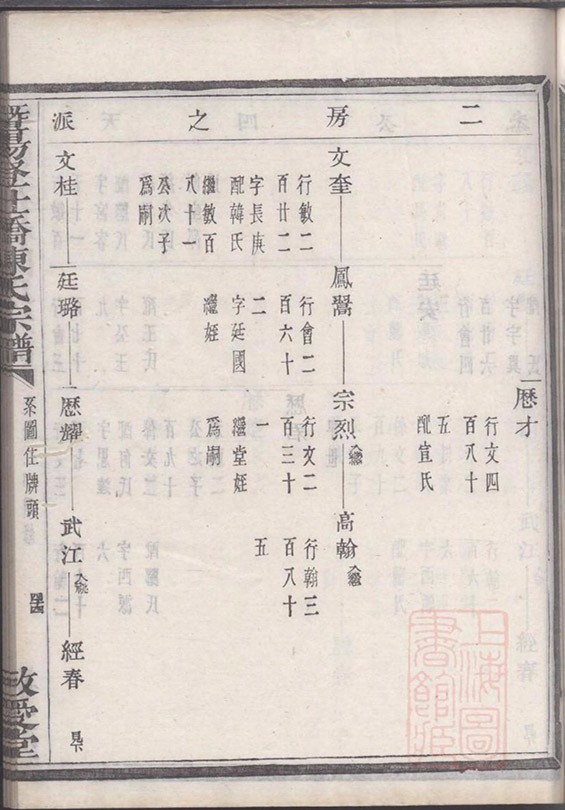 二房之派
歷才
行文四
百八十
五
配宣氏
文奎
行敏二
百廿二
字長庚
配韓氏
繼敏百
八十一
癸次子
爲嗣
鳳翯
行會二
百六十
二
字廷國
繼姪
宗烈
行文二
百三十
一
繼堂姪
爲嗣
高翰
行翰三
百八十
五
文桂
廷璐
歷耀
武江
經春
見下
陳氏宗譜
系圖任牌頭
敬愛堂
上海圖書館